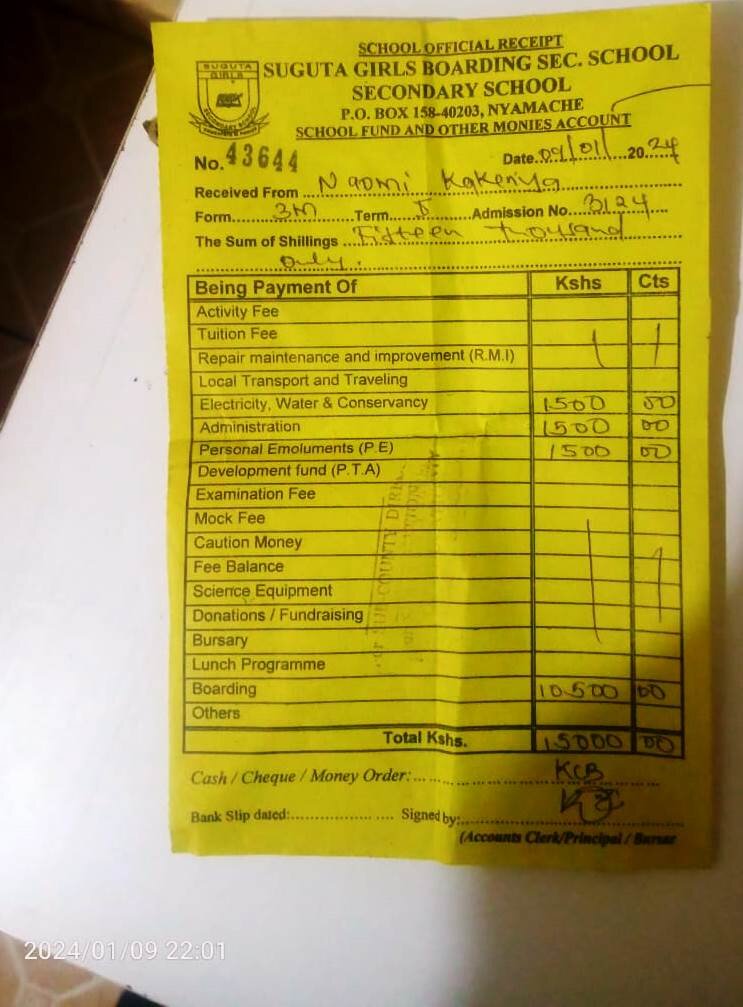 SCHOOL OFFICIAL RECEIPT
SUGUTA GIRLS
SUGUTA GIRLS BOARDING SEC. SCHOOL
SECONDARY SCHOOL
P.O. BOX 158-40203, NYAMACHE
SCHOOL FUND AND OTHER MONIES ACCOUNT
No. 43644 Date. 09/01/ 2024
Received From Naomi
Form 3M Term I Admission No. 3124
The Sum of Shillings Fifteen thousand
only.
Being Payment Of Kshs Cts
Activity Fee
Tuition Fee
Repair maintenance and improvement (R.M.I)
Local Transport and Traveling
Electricity, Water & Conservancy 1500 00
Administration 1500 00
Personal Emoluments (P.E) 1500 00
Development fund (P.T.A)
Examination Fee
Mock Fee
Caution Money
Fee Balance
Science Equipment
Donations / Fundraising
Bursary
Lunch Programme
Boarding 10500 00
Others
Total Kshs. 15000 00
Cash / Cheque / Money Order: KCB
Bank Slip dated: Signed by:
(Accounts Clerk/Principal / Bursar
2024/01/09 22:01